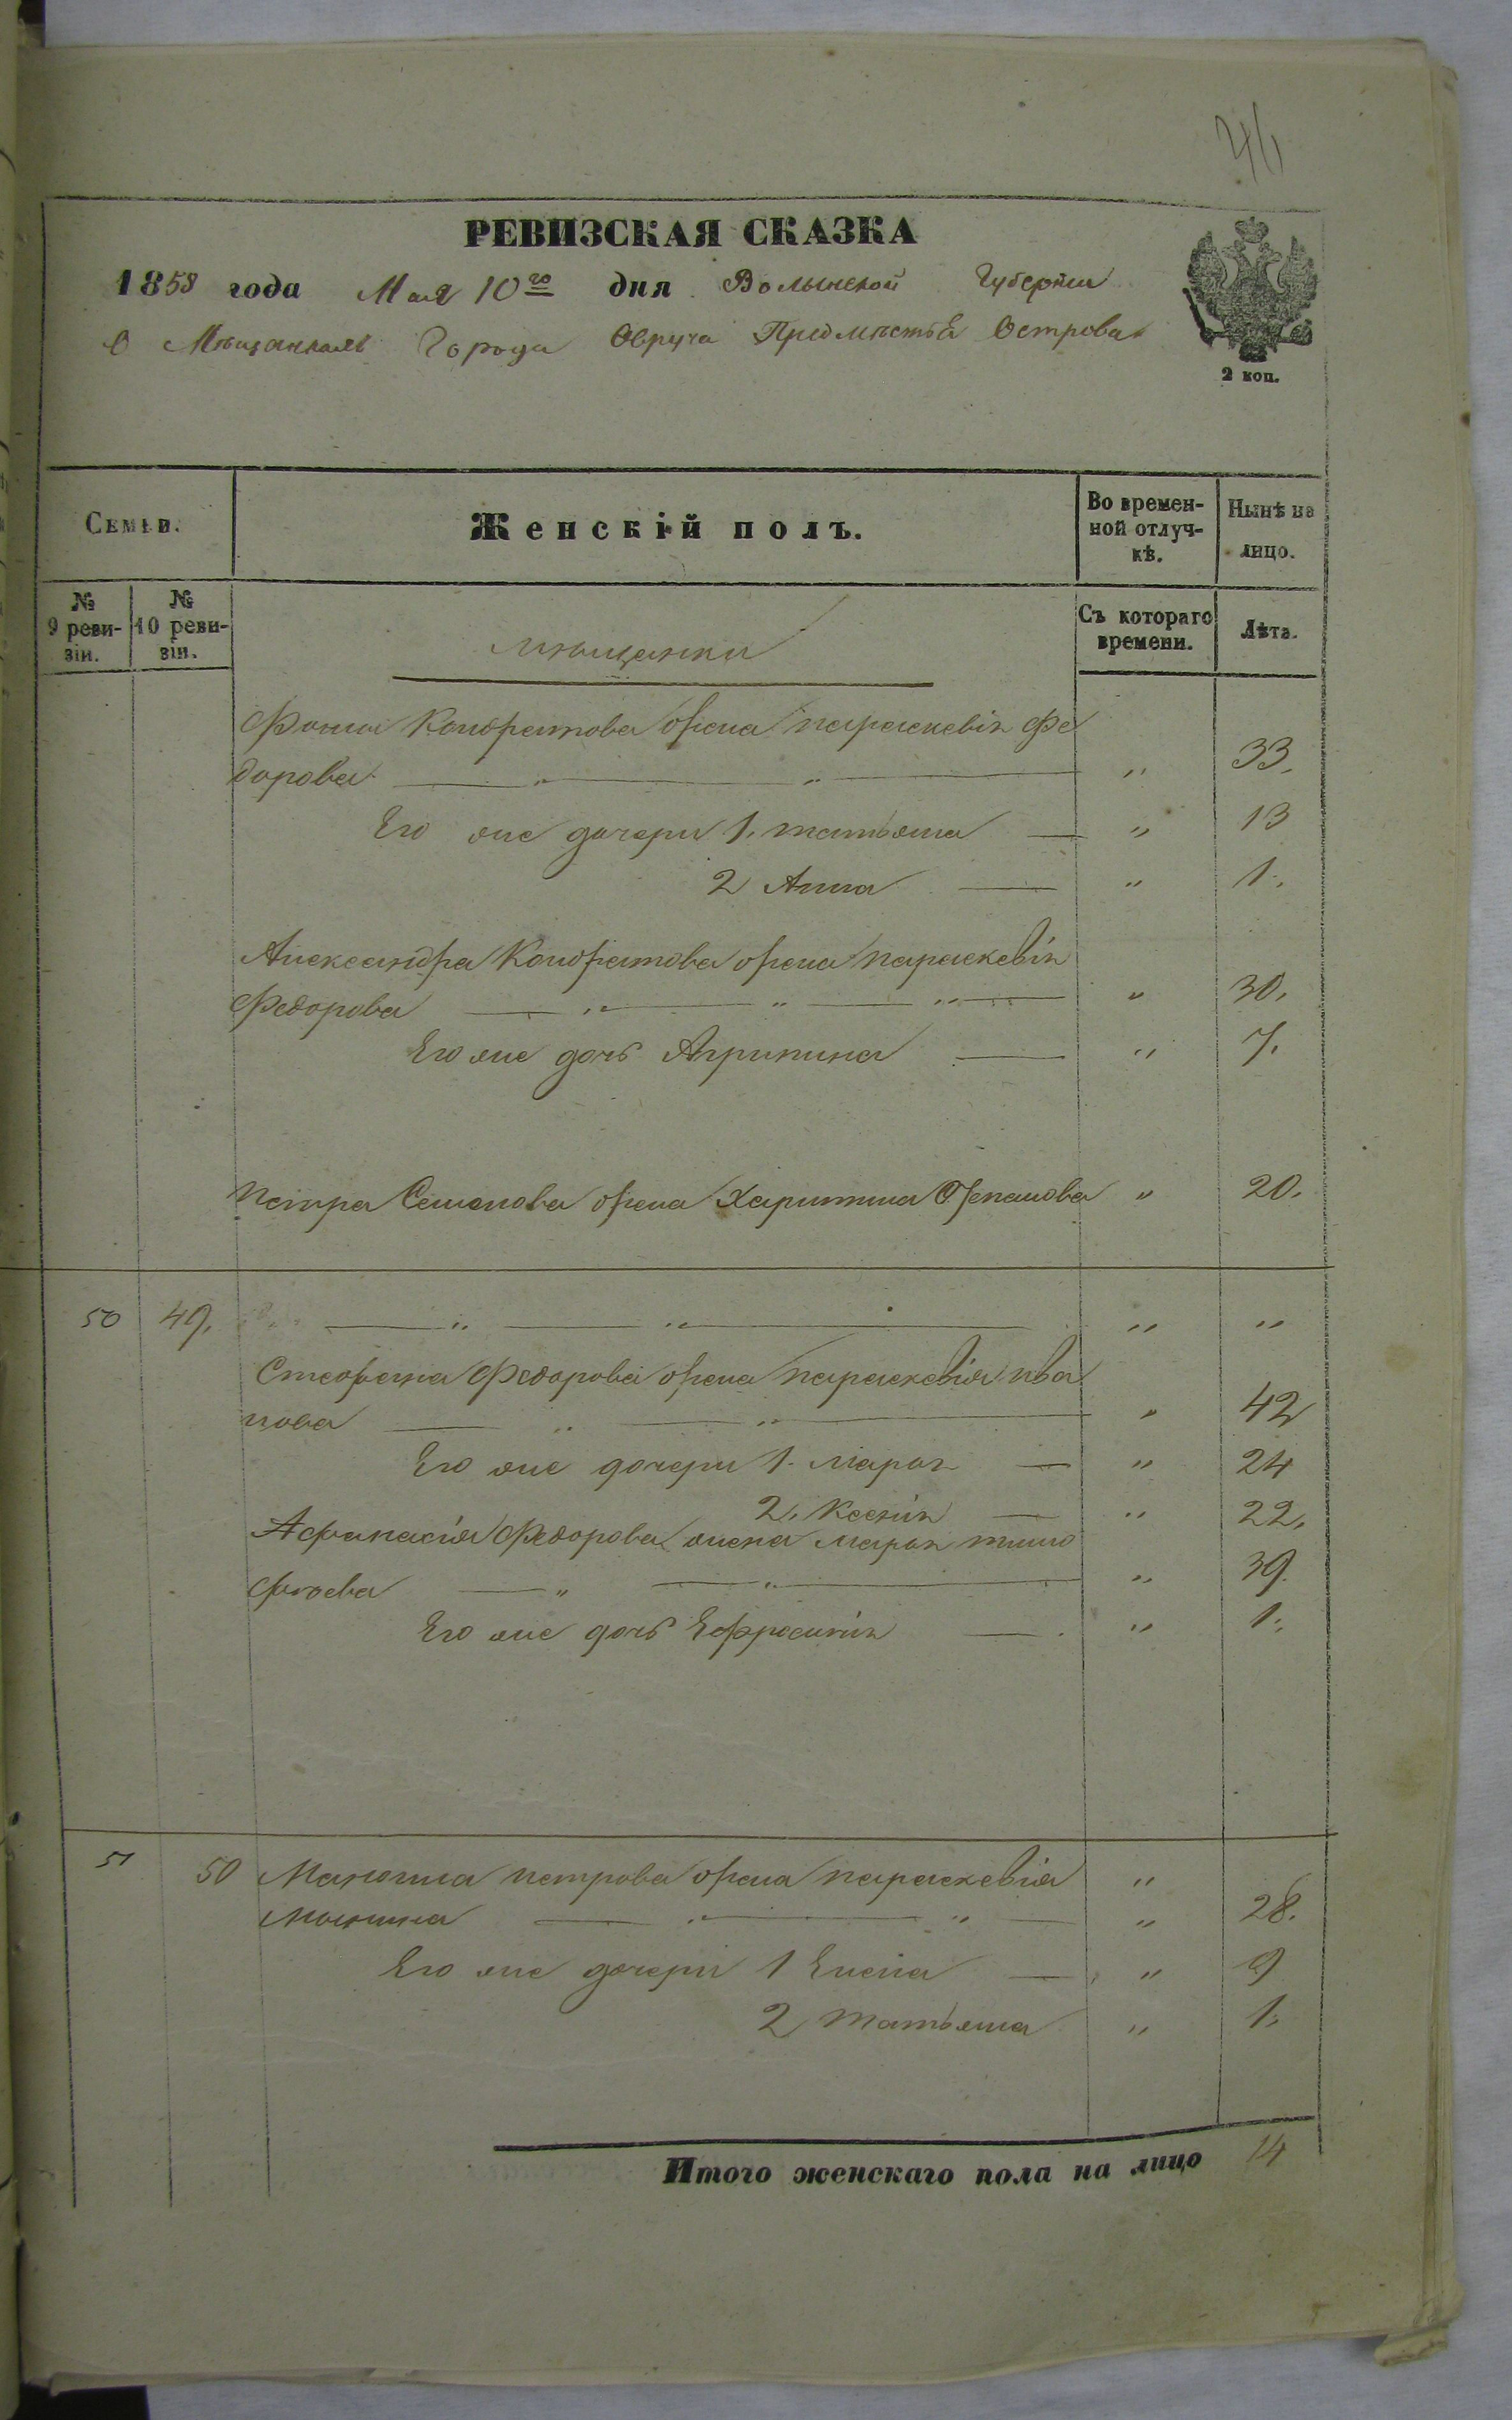 46
РЕВИЗСКАЯ СКАЗКА
1858 года Мая 10го дня Волынской Губернiи
О Мѣщанкахъ Города Овруча Предмѣстья Острова
2 коп.
Семьи.
Женскій полъ.
Во времен-
ной отлуч-
кѣ.
Нынѣ на
лицо.
№
9 реви-
зіи.
№
10 реви-
зіи.
мѣщанки
Съ котораго
времени.
Лѣта.
Фомы Кондратова жена параскевія Фе
дорова " " " 33.
Его же дочери 1. татьяна " 13
2 Анна " 1.
Александра Кондратова жена параскевія
Федорова " " " " 30.
Его же дочь Агрипина " 7.
петра Семенова жена Харитина Степанова " 20.
50 49. " " " "
Стефана Федорова жена параскевія ива
нова " " " 42
Его же дочери 1. марья " 24
2. Ксенія " 22.
Афанасія Федорова жена марья тимо
фѣева " " " 39.
Его же дочь Ефросинія " 1.
51 50 петрова жена параскевія "
" " " 28.
Его же дочери 1 Елена " 9
2 Татьяна " 1.
Итого женскаго пола на лицо 14